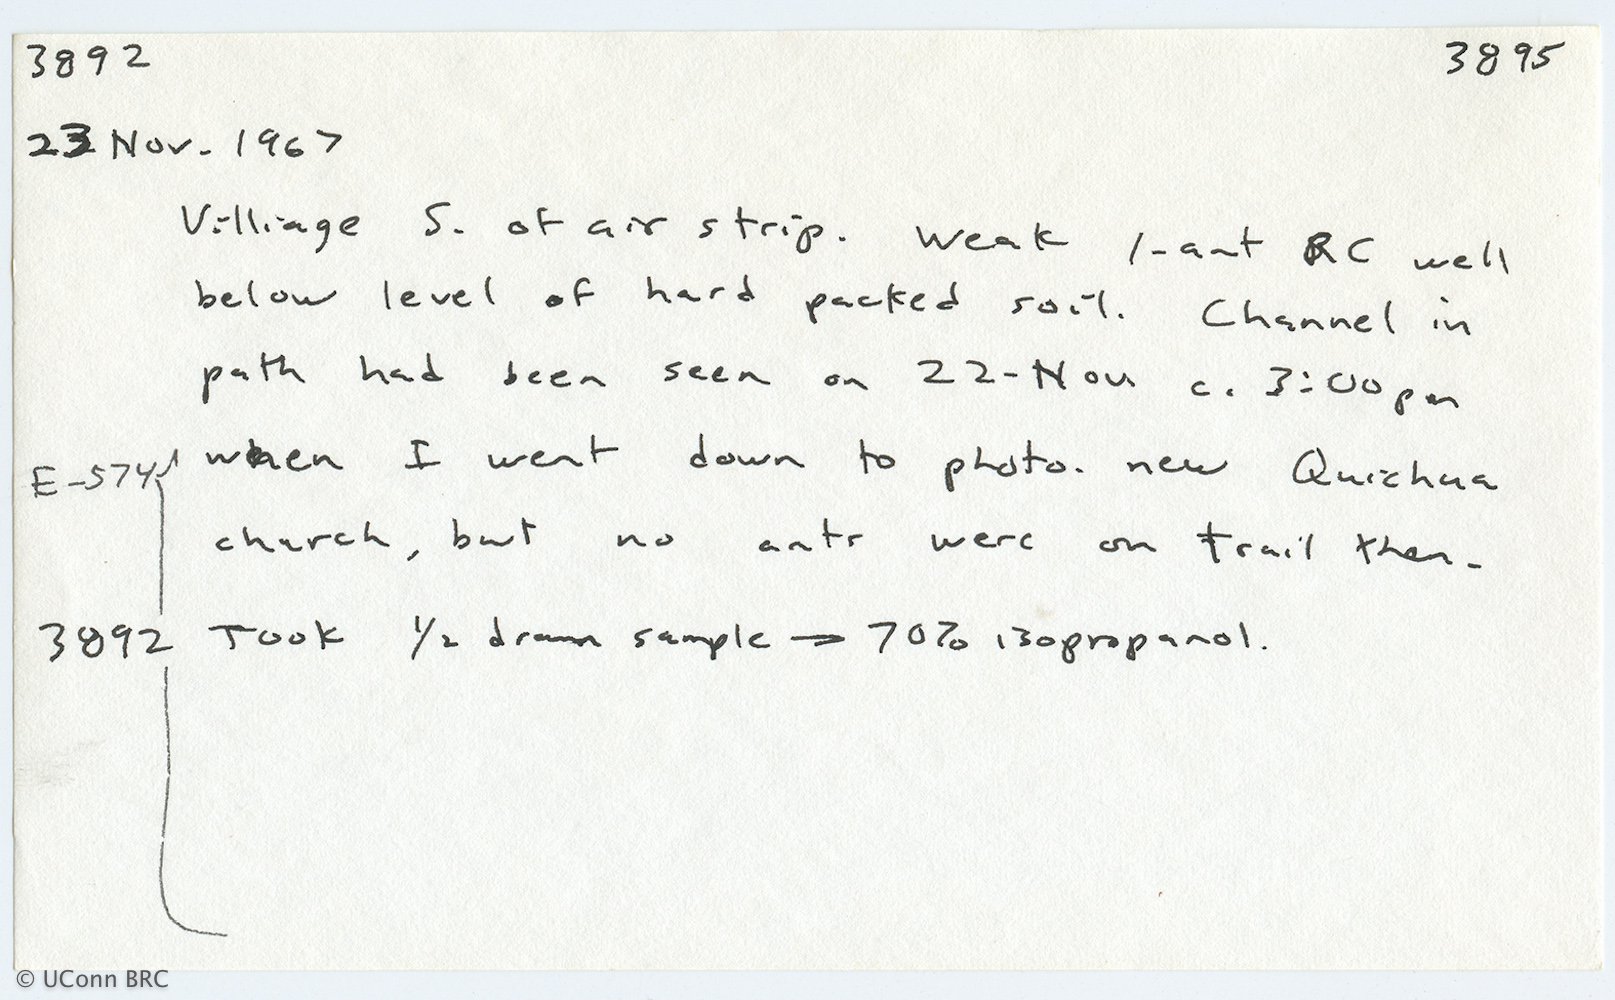 3892 3895
23 Nov. 1967
Villiage S. of air strip. Weak 1-ant RC well
below level of hard packed soil. Channel in
path had been seen on 22-Nov c. 3:00pm
E-574 when I went down to photo. new Quichua
church, but no ants were on trail then.
3892 Took 1/2 dram sample → 70% isopropanol.
© UConn BRC